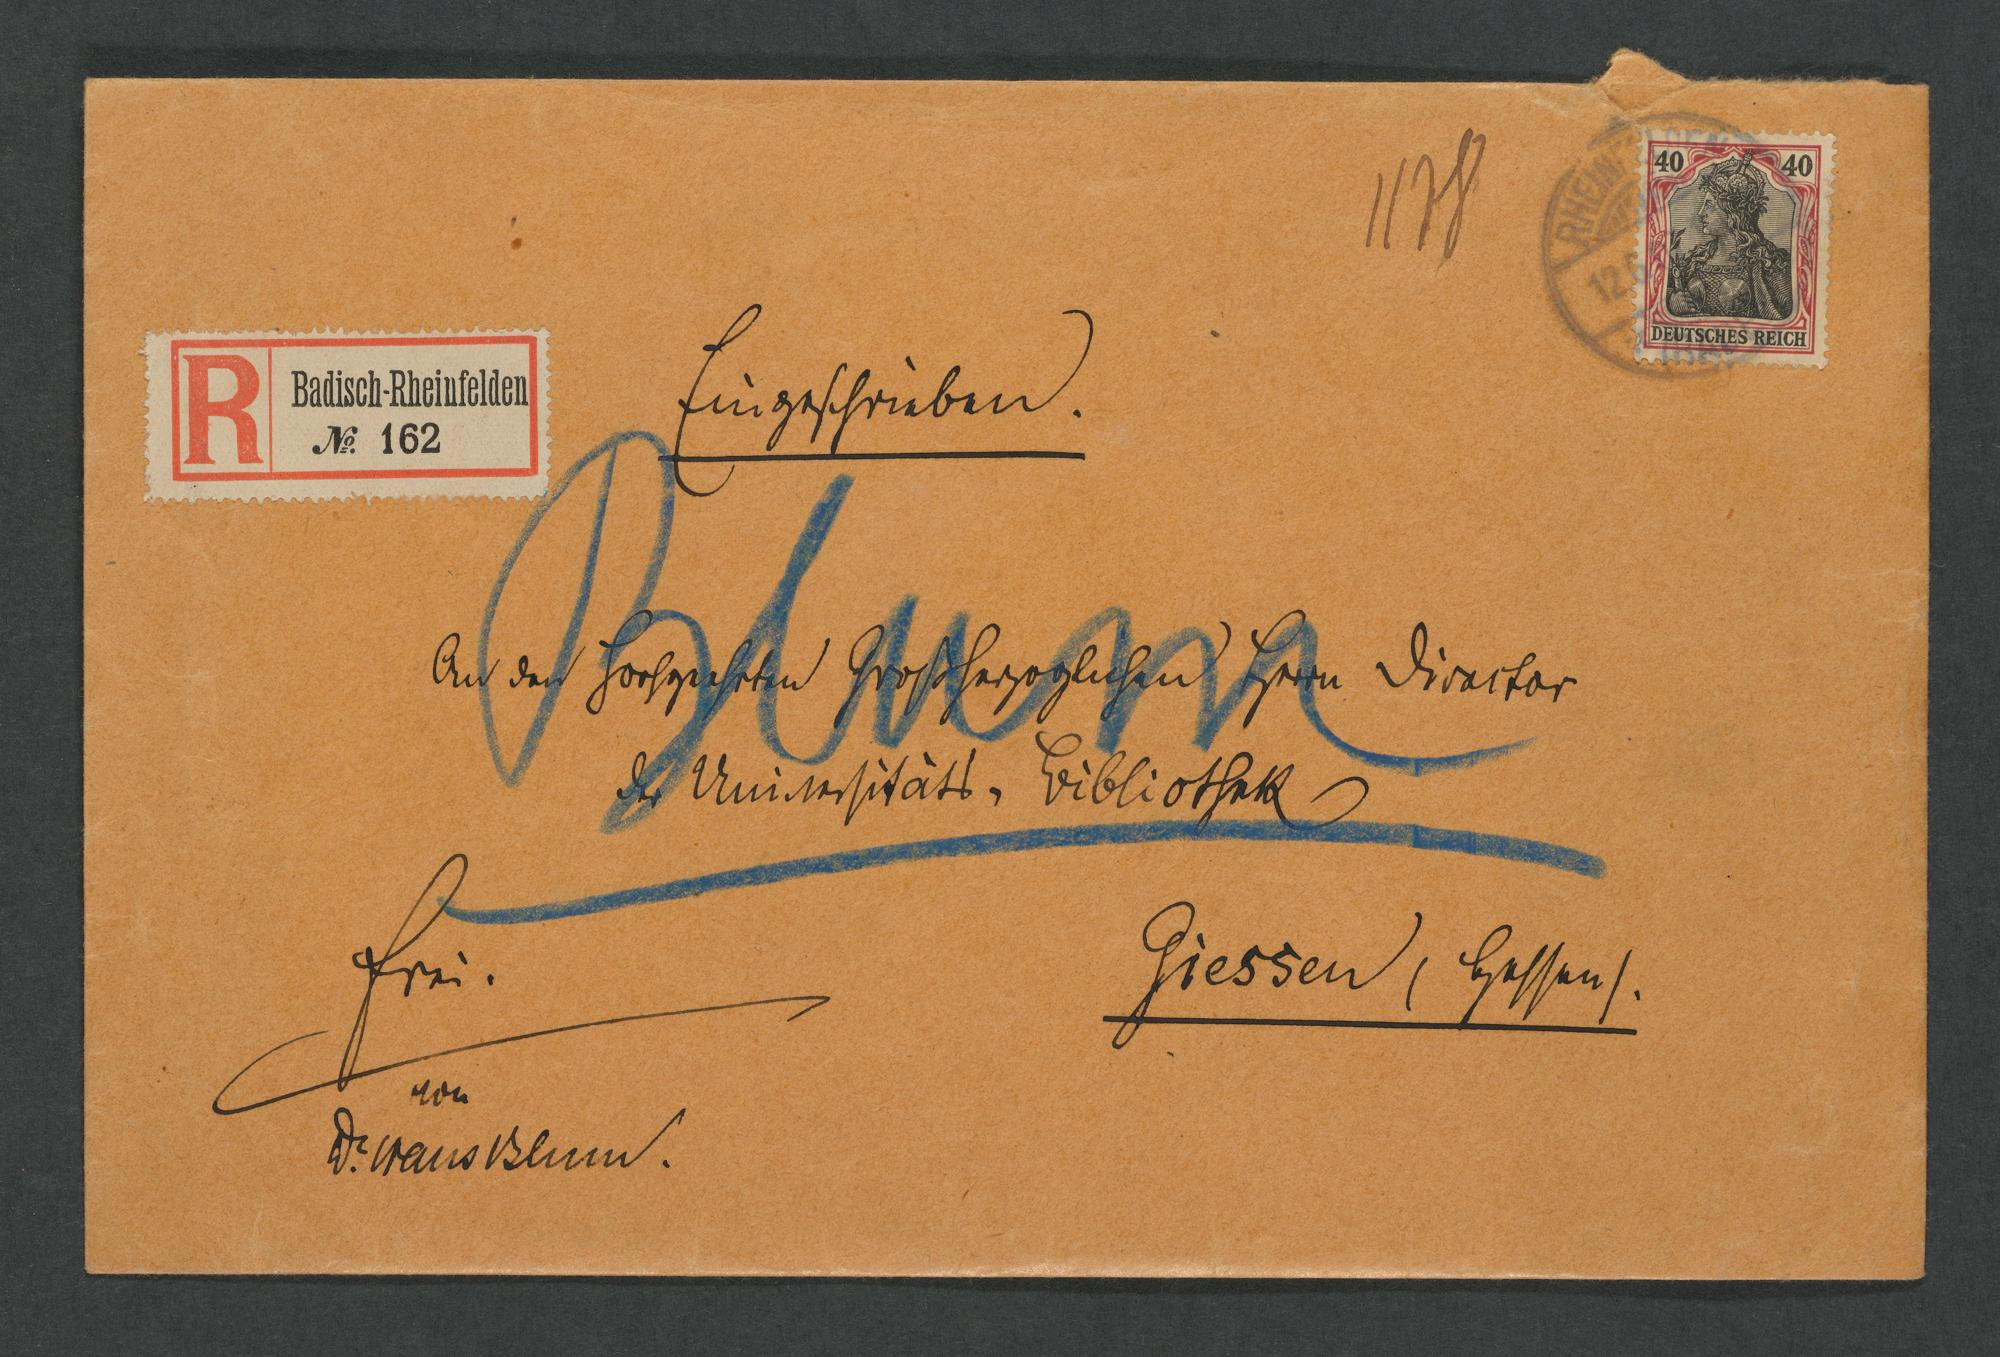 1178
40 40
DEUTSCHES REICH
12.6
R Badisch-Rheinfelden
№ 162
Eingeschrieben.
Blum
An den hochgeehrten Großherzoglichen Herrn Director
der Universitäts-Bibliothek
Giessen (Hessen).
Frei.
von
Dr. Hans Blum.